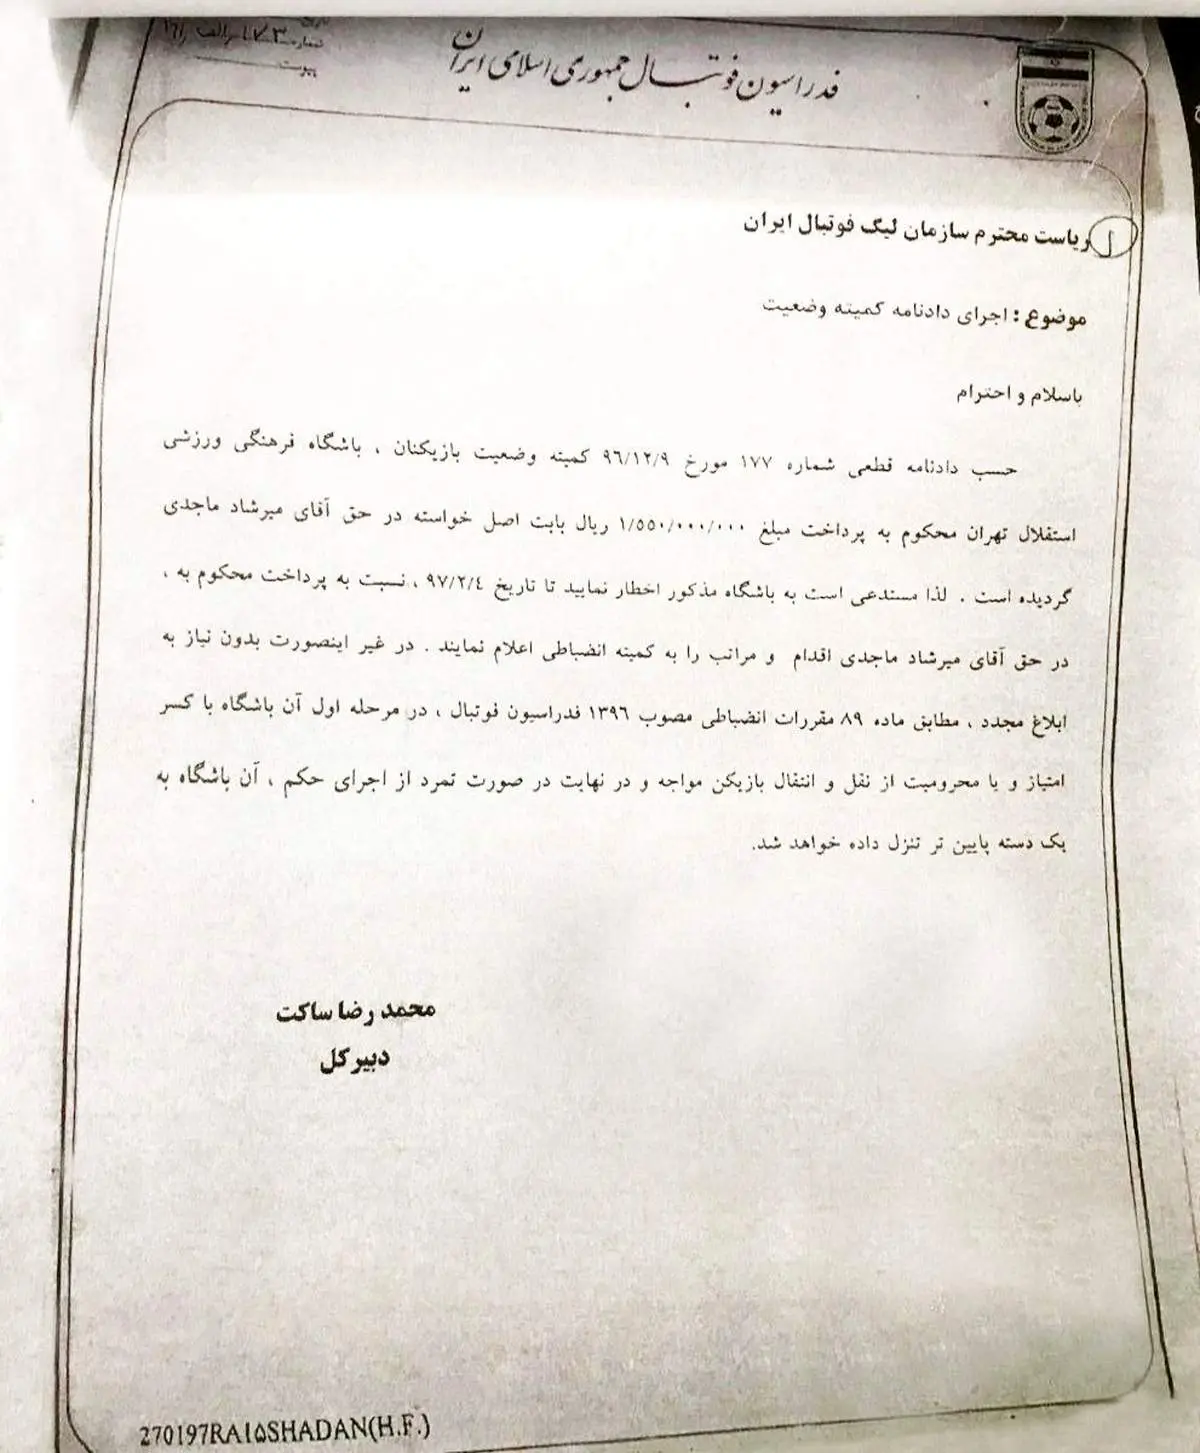 فدراسیون فوتبال جمهوری اسلامی ایران
تاریخ
شماره
پیوست
ریاست محترم سازمان لیگ فوتبال ایران
موضوع : اجرای دادنامه کمیته وضعیت
باسلام و احترام
حسب دادنامه قطعی شماره ۱۷۷ مورخ ۹٦/۱۲/۹ کمیته وضعیت بازیکنان ، باشگاه فرهنگی ورزشی
استقلال تهران محکوم به پرداخت مبلغ ۱/۵۵۰/۰۰۰/۰۰۰ ریال بابت اصل خواسته در حق آقای میرشاد ماجدی
گردیده است . لذا مستدعی است به باشگاه مذکور اخطار نمایید تا تاریخ ۹۷/۲/٤ ، نسبت به پرداخت محکوم به ،
در حق آقای میرشاد ماجدی اقدام و مراتب را به کمیته انضباطی اعلام نمایند . در غیر اینصورت بدون نیاز به
ابلاغ مجدد ، مطابق ماده ۸۹ مقررات انضباطی مصوب ۱۳۹٦ فدراسیون فوتبال ، در مرحله اول آن باشگاه با کسر
امتیاز و یا محرومیت از نقل و انتقال بازیکن مواجه و در نهایت در صورت تمرد از اجرای حکم ، آن باشگاه به
یک دسته پایین تر تنزل داده خواهد شد.
محمد رضا ساکت
دبیرکل
270197RA۱۵SHADAN(H.F.)